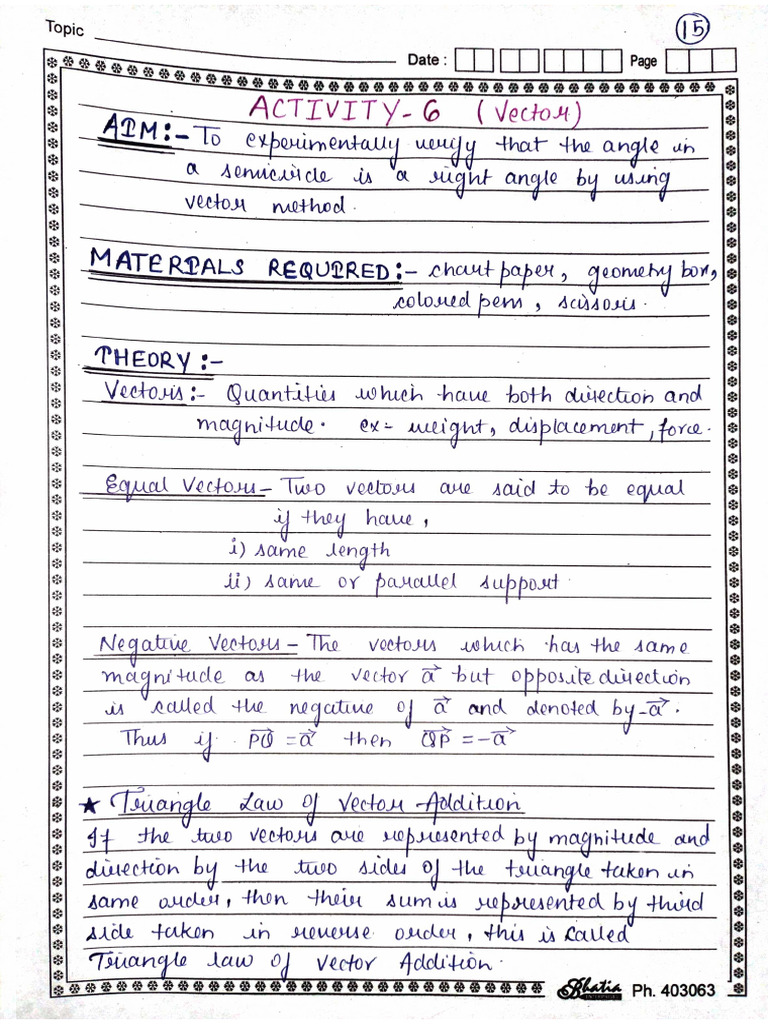 Topic
15
Date : Page
ACTIVITY-6 (Vector)
AIM:- To experimentally verify that the angle in
a semicircle is a right angle by using
vector method.
MATERIALS REQUIRED:- chart paper, geometry box,
colored pens, scissors.
THEORY:-
Vectors:- Quantities which have both direction and
magnitude. ex- weight, displacement, force.
Equal Vectors- Two vectors are said to be equal
if they have,
i) same length
ii) same or parallel support.
Negative Vectors- The vectors which has the same
magnitude as the vector a⃗ but opposite direction
is called the negative of a⃗ and denoted by -a⃗.
Thus if PQ⃗ = a⃗ then QP⃗ = -a⃗
★ Triangle Law of Vector Addition
If the two vectors are represented by magnitude and
direction by the two sides of the triangle taken in
same order, then their sum is represented by third
side taken in reverse order, this is called
Triangle law of vector Addition.
Bhatia Ph. 403063